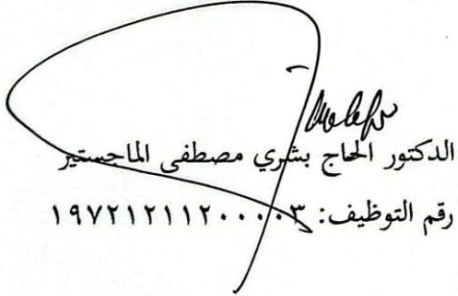 الدكتور الحاج بشري مصطفى الماجستير
رقم التوظيف: ١٩٧٢١٢١١٢٠٠٠٠٣